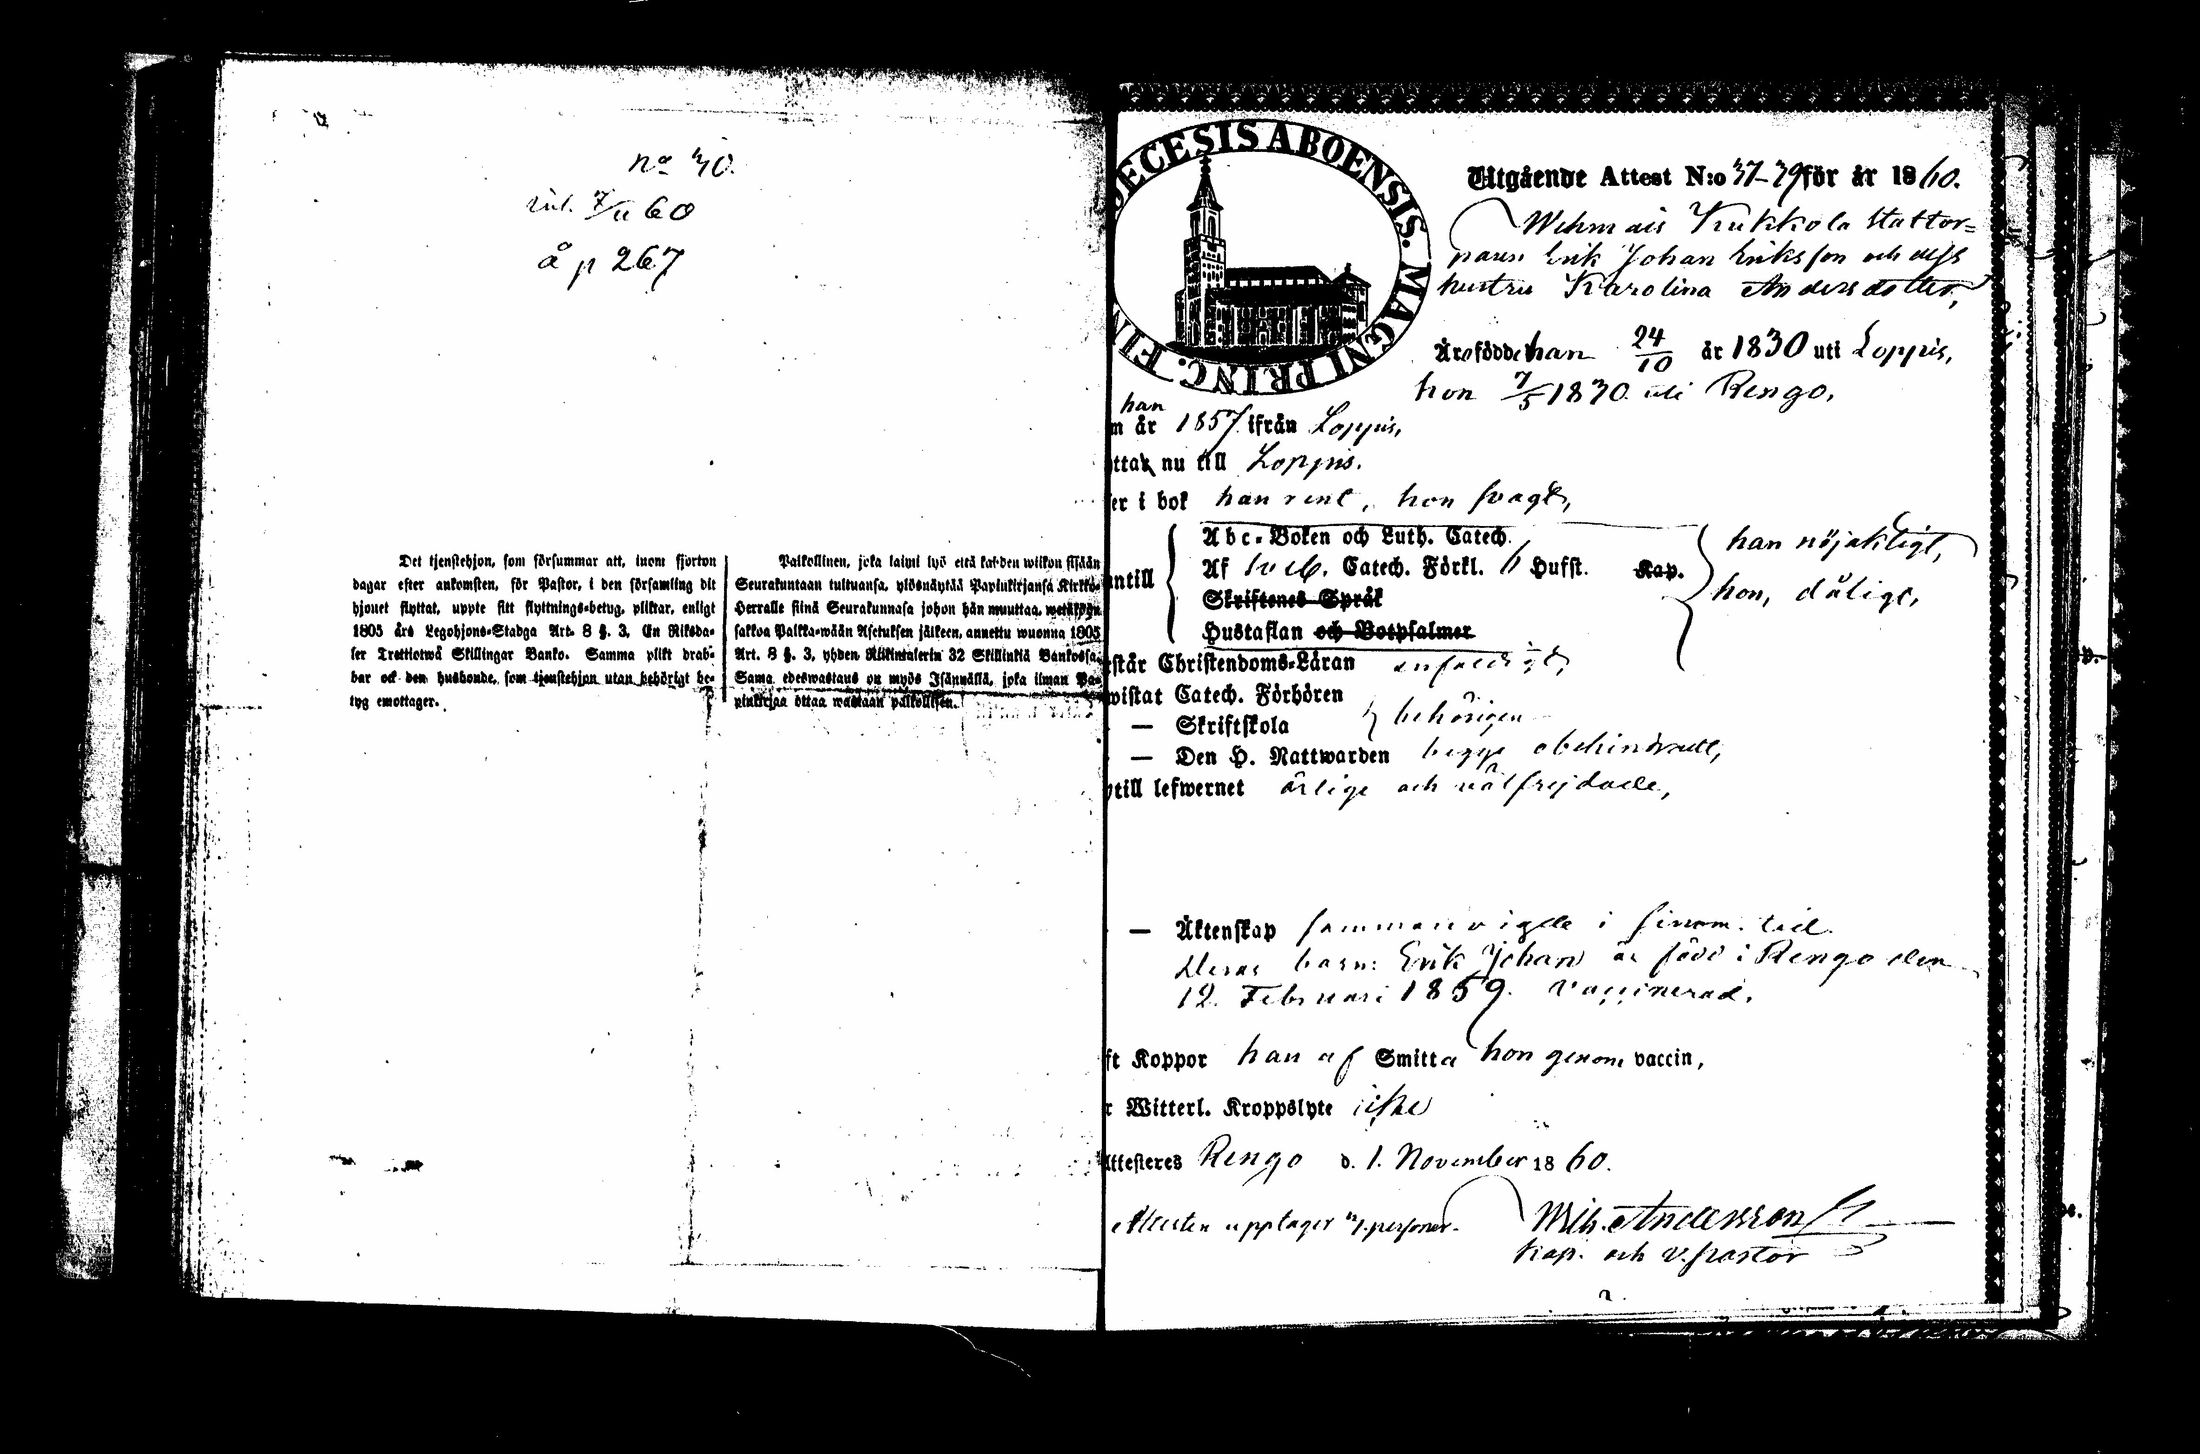 no 30.
inl. 7/11 60
å p 267
Det tjenstehjon, som försummar att, inom fjorton
dagar efter ankomsten, för Pastor, i den församling dit
hjonet flyttat, uppte sitt flyttnings-betyg, pliktar, enligt
1805 års Legohjons-Stadga Art. 8 §. 3, En Riksda-
ler Trettiotwå Skillingar Banko. Samma plikt drab-
bar ock den husbonde, som tjenstehjon utan behörigt be-
tyg emottager.
Palkollinen, joka laimi lyö että kahden wiikon sisään
Seurakuntaan tultuansa, ylösnäyttää Papinkirjansa Kirkko-
Herralle siinä Seurakunnasa johon hän muuttaa, wetäköön
sakkoa Palkka-wään Asetuksen jälkeen, annettu wuonna 1805
Art. 8 §. 3, yhden Riikintalerin 32 Skillinkiä Bankossa.
Sama edeswastaus on myös Isännällä, joka ilman Pa-
pinkirjaa ottaa wastaan palkollisen.
DIECESIS ABOENSIS. MAGNI PRINC. FIN
Utgående Attest N:o 37-39 för år 1860.
Wehmais Kukkola Stattor=
paren Erik Johan Eriksson och dess
hustru Karolina Andersdotter,
Äro födde han 24/10 år 1830 uti Loppis,
hon 7/5 1830 uti Rengo,
han
m år 1857 ifrån Loppis,
ttar nu till Loppis.
er i bok han rent, hon svagt,
ntill
Abc-Boken och Luth. Catech.
Af Sveb. Catech. Förkl. 6 Hufst. Kap.
Skriftenes Språk
Hustaflan och Botpsalmer
han nöjaktigt,
hon, dåligt,
står Christendoms-Läran enfaldigt,
wistat Catech. Förhören
— Skriftskola
behörigen
— Den H. Nattwarden begge obehindrade,
till lefwernet ärlige och välfrejdade,
— Äktenskap sammanvigde i sinom tid.
Deras barn: Erik Johan är född i Rengo den
12. Februari 1859. Vaccinerad.
ft Koppor han af Smitta hon genom vaccin,
r Witterl. Kroppslyte icke
Attesteres Rengo d. 1. November 1860.
Attesten upptager 3 personer.
Wilh. Andersson
Kap. och v. pastor